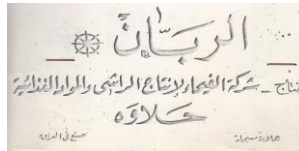 الربان
نتاج - شركة الفيحاء لإنتاج الراشي والمواد الغذائية
حلاوه
حلاوة سمسمية صنع في العراق